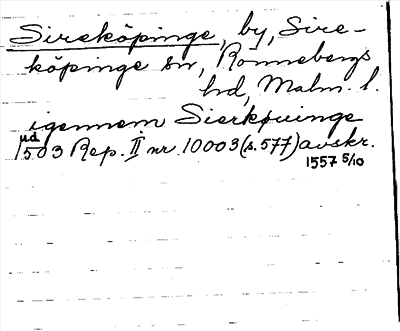 Sireköpinge, by, Sire-
köpinge sn, Rönnebergs
hd, Malm. l.
igennem Sierkøuinge
u.d.
1503 Rep. II nr. 10003 (s. 577) avskr.
1557 5/10